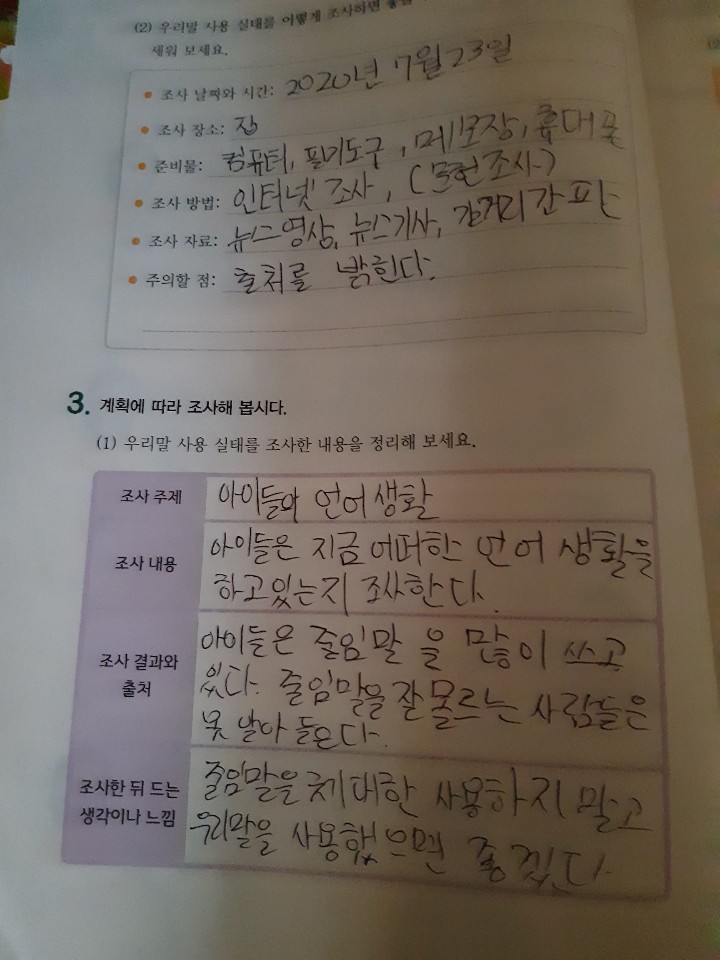 (2) 우리말 사용 실태를 어떻게 조사하면 좋을
세워 보세요.
조사 날짜와 시간: 2020년 7월 23일
조사 장소: 집
준비물: 컴퓨터, 필기도구, 메모장, 휴대폰
조사 방법: 인터넷 조사, (문헌조사)
조사 자료: 뉴스영상, 뉴스기사, 길거리 간판
주의할 점: 출처를 밝힌다.
3. 계획에 따라 조사해 봅시다.
(1) 우리말 사용 실태를 조사한 내용을 정리해 보세요.
조사 주제 아이들의 언어생활
조사 내용 아이들은 지금 어떠한 언어 생활을
하고있는지 조사한다.
조사 결과와 출처 아이들은 줄임말 을 많이 쓰고
있다. 줄임말을 잘 몰르는 사람들은
못 알아 듣는다.
조사한 뒤 드는 생각이나 느낌 줄임말을 최대한 사용하지 말고
우리말을 사용했으면 좋겠다.